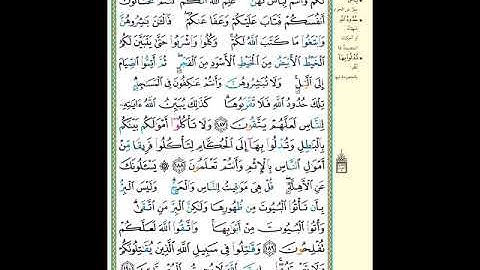 لَكُمْ وَأَنتُمْ لِبَاسٌ لَّهُنَّ ۗ عَلِمَ ٱللَّهُ أَنَّكُمْ كُنتُمْ تَخْتَانُونَ
أَنفُسَكُمْ فَتَابَ عَلَيْكُمْ وَعَفَا عَنكُمْ ۖ فَٱلْـَٰٔنَ بَـٰشِرُوهُنَّ
وَٱبْتَغُوا۟ مَا كَتَبَ ٱللَّهُ لَكُمْ ۚ وَكُلُوا۟ وَٱشْرَبُوا۟ حَتَّىٰ يَتَبَيَّنَ لَكُمُ
ٱلْخَيْطُ ٱلْأَبْيَضُ مِنَ ٱلْخَيْطِ ٱلْأَسْوَدِ مِنَ ٱلْفَجْرِ ۖ ثُمَّ أَتِمُّوا۟ ٱلصِّيَامَ
إِلَى ٱلَّيْلِ ۚ وَلَا تُبَـٰشِرُوهُنَّ وَأَنتُمْ عَـٰكِفُونَ فِى ٱلْمَسَـٰجِدِ ۗ
تِلْكَ حُدُودُ ٱللَّهِ فَلَا تَقْرَبُوهَا ۗ كَذَٰلِكَ يُبَيِّنُ ٱللَّهُ ءَايَـٰتِهِۦ
لِلنَّاسِ لَعَلَّهُمْ يَتَّقُونَ ١٨٧ وَلَا تَأْكُلُوٓا۟ أَمْوَٰلَكُم بَيْنَكُم
بِٱلْبَـٰطِلِ وَتُدْلُوا۟ بِهَآ إِلَى ٱلْحُكَّامِ لِتَأْكُلُوا۟ فَرِيقًا مِّنْ
أَمْوَٰلِ ٱلنَّاسِ بِٱلْإِثْمِ وَأَنتُمْ تَعْلَمُونَ ١٨٨ يَسْـَٔلُونَكَ
عَنِ ٱلْأَهِلَّةِ ۖ قُلْ هِىَ مَوَٰقِيتُ لِلنَّاسِ وَٱلْحَجِّ ۗ وَلَيْسَ ٱلْبِرُّ
بِأَن تَأْتُوا۟ ٱلْبُيُوتَ مِن ظُهُورِهَا وَلَـٰكِنَّ ٱلْبِرَّ مَنِ ٱتَّقَىٰ ۗ
وَأْتُوا۟ ٱلْبُيُوتَ مِنْ أَبْوَٰبِهَا ۚ وَٱتَّقُوا۟ ٱللَّهَ لَعَلَّكُمْ
تُفْلِحُونَ ١٨٩ وَقَـٰتِلُوا۟ فِى سَبِيلِ ٱللَّهِ ٱلَّذِينَ يُقَـٰتِلُونَكُمْ